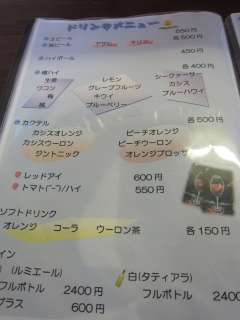 550円
ビール 各500円
ビール アサヒ キリン
ハイボール 450円
酎ハイ 各400円
生姜 レモン シークァーサー
ウコン グレープフルーツ カシス
梅 キウイ ブルーハワイ
桃 ブルーベリー
カクテル 各500円
カシスオレンジ ピーチオレンジ
カシスウーロン ピーチウーロン
ジントニック オレンジブロッサ
レッドアイ 600円
トマト(ビア)/ハイ 550円
ソフトドリンク
オレンジ コーラ ウーロン茶 各150円
イン
(ルミエール) 白(タティアラ)
フルボトル 2400円 フルボトル 2400円
グラス 600円